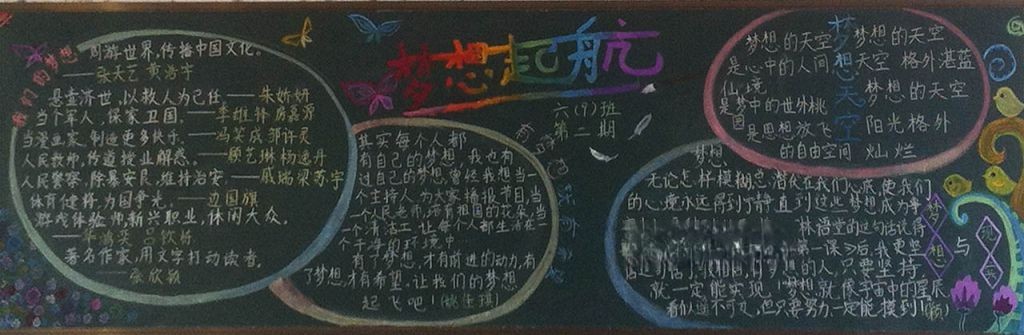 我们的梦想
周游世界,传播中国文化。
——张天艺 黄浩宇
悬壶济世,以救人为己任,——朱娇妍
当个军人,保家卫国。——李维特
当漫画家,制造更多快乐。——冯笑成 邹许灵
人民教师,传道授业解惑。——顾艺琳 杨逸丹
人民警察,除暴安民,维持治安。——戚瑞梁 苏宇
体育健将,为国争光。——边国旗
游戏体验师,新兴职业,休闲大众。
著名作家,用文字打动读者。
——张欣颖
梦想起航
六(9)班
第二期
其实每个人都
有自己的梦想,我也有
过自己的梦想,曾经我想当
一个主持人,为大家播报节目,当
一个人民老师,培育祖国的花朵,当
一个清洁工,让每个人都生活在一
个干净的环境中
有了梦想,才有前进的动力,有
了梦想,才有希望,让我们的梦想
起飞吧!
梦想天空
梦想的天空
是心中的人间
仙境
是梦中的世外桃
园
是思想放飞
的自由空间
梦想的天空
天空 格外湛蓝
梦想的天空
阳光格外
灿烂
梦想
无论怎样模糊,总潜伏在我们心底,使我们
的心境永远得到宁静,直到这些梦想成为事
林语堂的这句话
第一课》后,我更坚
的人,只要坚持,
就一定能实现!"梦想就像宇宙中的星辰
看似遥不可及,但只要努力,一定能摸到!"
梦想与